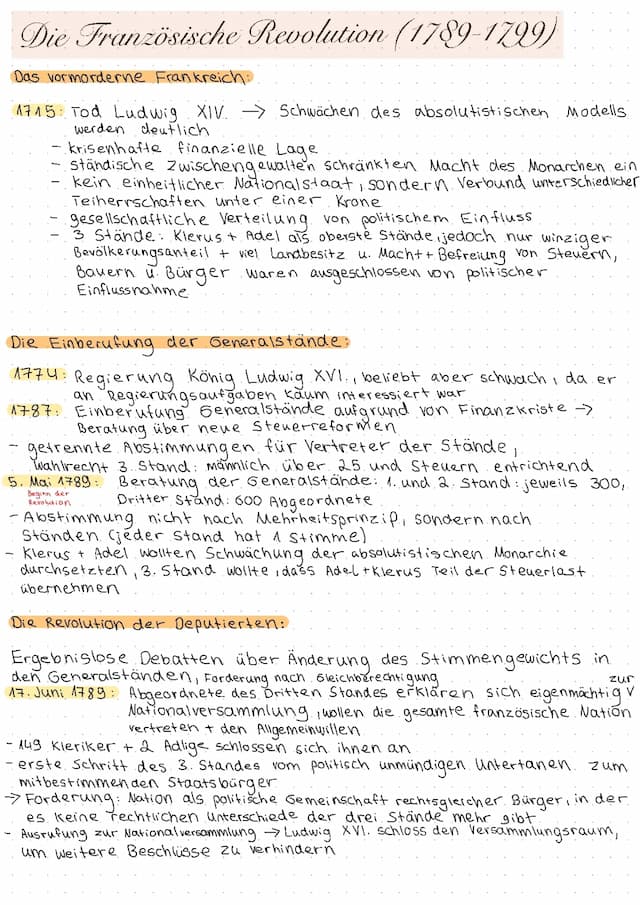 Die Französische Revolution (1789-1799)
Das vormorderne Frankreich:
1715: Tod Ludwig XIV. → Schwächen des absolutistischen Modells
werden deutlich
- krisenhafte finanzielle Lage
- ständische Zwischengewalten schränkten Macht des Monarchen ein
- kein einheitlicher Nationalstaat, sondern Verbund unterschiedlicher
Teilherrschaften unter einer Krone
- gesellschaftliche Verteilung von politischem Einfluss
- 3 Stände: Klerus + Adel als oberste Stände, jedoch nur winziger
Bevölkerungsanteil + viel Landbesitz u. Macht + Befreiung von Steuern,
Bauern u. Bürger waren ausgeschlossen von politischer
Einflussnahme
Die Einberufung der Generalstände:
1774: Regierung König Ludwig XVI., beliebt aber schwach, da er
an Regierungsaufgaben kaum interessiert war
1787: Einberufung Generalstände aufgrund von Finanzkriste →
Beratung über neue Steuerreformen
- getrennte Abstimmungen für Vertreter der Stände,
Wahlrecht 3. Stand: männlich über 25 und Steuern entrichtend
5. Mai 1789: Beratung der Generalstände: 1. und 2. Stand: jeweils 300,
Beginn der
Revolution
Dritter Stand: 600 Abgeordnete
- Abstimmung nicht nach Mehrheitsprinzip, sondern nach
Ständen (jeder Stand hat 1 Stimme)
- Klerus + Adel wollten Schwächung der absolutistischen Monarchie
durchsetzten, 3. Stand wollte, dass Adel + Klerus Teil der Steuerlast
übernehmen
Die Revolution der Deputierten:
Ergebnislose Debatten über Änderung des Stimmengewichts in
den Generalständen, Forderung nach Gleichberechtigung
17. Juni 1789: Abgeordnete des Dritten Standes erklären sich eigenmächtig zur
Nationalversammlung, wollen die gesamte französische Nation
vertreten + den Allgemeinwillen
- 149 Kleriker + 2 Adlige schlossen sich ihnen an
- erste Schritt des 3. Standes vom politisch unmündigen Untertanen zum
mitbestimmenden Staatsbürger
→ Forderung: Nation als politische Gemeinschaft rechtsgleicher Bürger, in der
es keine rechtlichen Unterschiede der drei Stände mehr gibt
- Ausrufung zur Nationalversammlung → Ludwig XVI. schloss den Versammlungsraum,
um weitere Beschlüsse zu verhindern